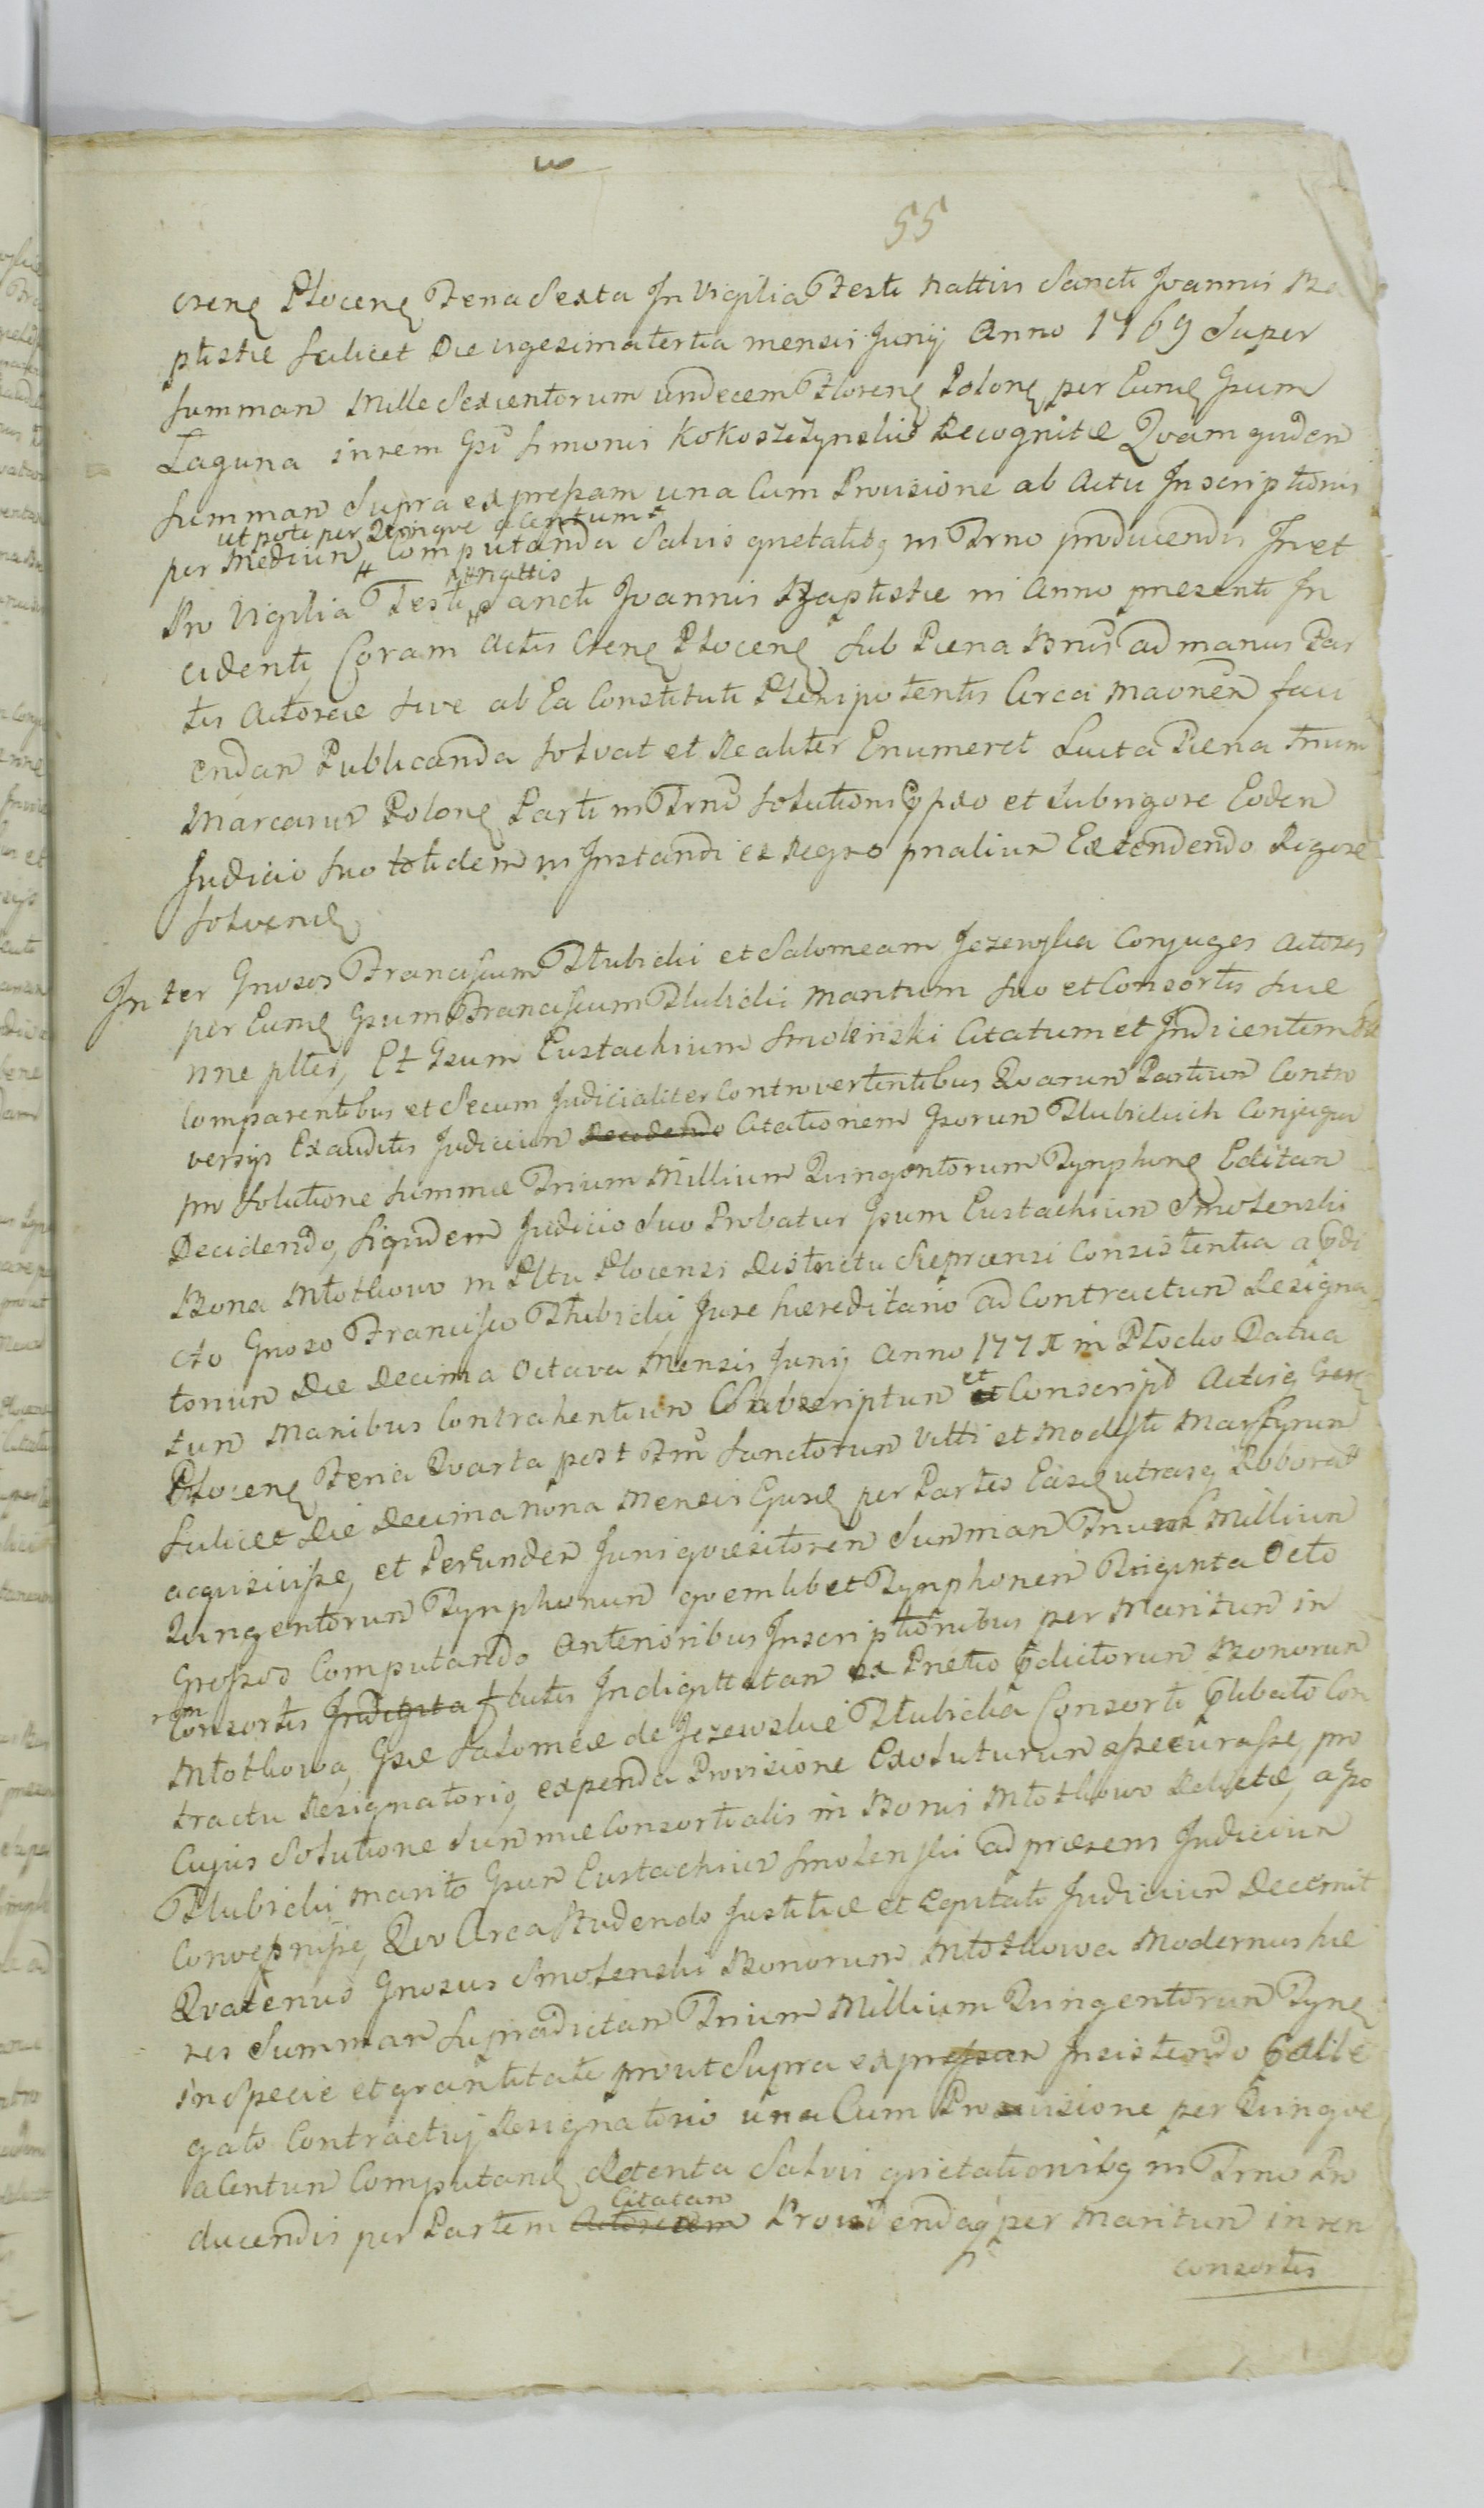 55
crenę Plocenę Feria Sexta In Vigilia Festi Nattis Sancti Joannis Ba
ptistæ scilicet Die vigesima tertia mensis Junij Anno 1769 Super
Summan Mille Sexcentorum undecem Florenę Polonę per Eumę Gsum
Laguna in rem Gsi Simonis Kokoszczynskio Recognitæ Qvam quiden
Summan Supra expressam una Cum Provisione ab Actu Inscriptionis
ut pote per Qvinqve a Centum
per Mediun computanda Salvis quetatibg in Trno producendis In et
Nattis
Pro Vigilia Festi Sancti Joannis Baptistæ in Anno presenti In
cidenti Coram Actis Crenę Plocenę sub Pæna Bnis ad manus Par
tis Actoreæ sive ab Ea Constituti Plenipotentis Circa maonen faci
endan Publicanda solvat et Realiter Enumeret Lucta Pæna trium
Marcarur Polonę Parti in Trno solutioni et sub rigore Eoden
Judicio suo totidem in Instanti ex Regro pnaliun Extendendo Rigore
solvenę
Inter Gnosos Franciscum Dłubicki et Salomeam Jezewska Conjuges Actores
per Eumę Gsum Franciscum Dłubicki Maritum suo et Consortis suæ
nne pltes, Et Gsum Eustachium Smolenski Citatum et Judicentem
Comparentibus et Secum Judicialiter Controvertentibus Qvarun Partiun Contro
versys Exauditis Judiciun Decidendo Citationem Gsorun Dłubickich Conjugun
pro solutione summæ Trium Millium Quingentorum Tynphonę Editan
Decidendo, siquidem Judicio suo Probatur Gsum Eustachiun Smolenski
Bona Młotkowo in Pltu Plocensi Districtu Sieprcensi Consistentia a
cto Gnoso Francisco Dłubicki Jure hæreditario ad Contractun Resigna
toriun Die Decima Octava Mensis Junij Anno in Płocko Datun
tun Manibus Contrahentiun Subscriptun et Conscript Actisq Crenę
Plocenę Feria Qvarta post Sanctorun Vitti et Modesti Martyrun
scilicet Die Decima nona Mensis Ejusdę per Partes Easdę utrasq Roborat
acqvisivisse, et Per Eunden Juri qvæsitoren Summan Trium Milliun
Quingentorun Tynphonun qvemlibet Tynphonen Triginta Octo
Grossos Computando Anterioribus Inscriptionibus per Maritun in
rem
Consortis Indigita factis Indigitatan ex Pretio Bonorun
Młotkowa, Gsæ Salomeæ de Jezewskie Dłubicka Consorti Con
tractu Resignatorio, expenda Provisione Exoluturun spe curasse, pro
Cujus Solutione Summæ Consortialis in Bonis Młotkowo Relictæ, a Gso
Dłubicki marito Gsun Eustachiun Smolenski ad præsens Judiciun
Convenisse, Qvo Circa Studendo Justitiæ et Eqvitati Judiciun Decernit
Qvatenus Gnosus Smolenski Bonorum Młotkowa Modernus hæ
res Summan Supradictan Trium Millium Quingentorun Tynę
in Specie et qvantitate prout Supra expressan Insistendo
gato Contractuj Resignatorio una Cum Provisione per Quinqve
a Centun Computanę Retenta Salvis qvietationibg in Trno Pro
Citatan
ducendis per Partem Actoream Providendaq per Maritun in ren
consortis